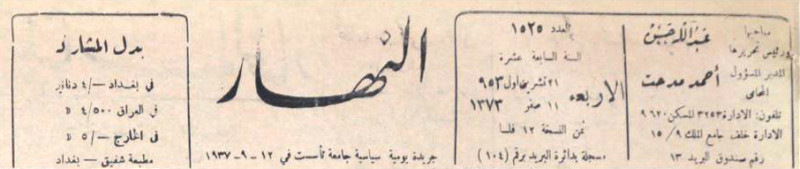 صاحبها
ورئيس تحريرها
عبد الله حسن
المدير المسؤول
المحامي
أحمد مدحت
تلفون: الادارة ٣٢٥٣ المسكن ٩٦٢٠
الادارة خلف جامع الملك ٩/ ١٥
رقم صندوق البريد ١٣
العدد ١٥٢٥
السنة السابعة عشرة
الاربعاء
٢١ تشرين اول ٩٥٣
١١ صفر ١٣٧٣
ثمن النسخة ١٢ فلسا
مسجلة بدائرة البريد برقم (١٠٤)
النهار
جريدة يومية سياسية جامعة تأسست في ١٢ - ٩ - ١٩٣٧
بدل المشاركة
في بغداد —/٤ دنانير
في العراق ٤/٥٠٠ »
في الخارج —/٥ »
مطبعة شفيق — بغداد